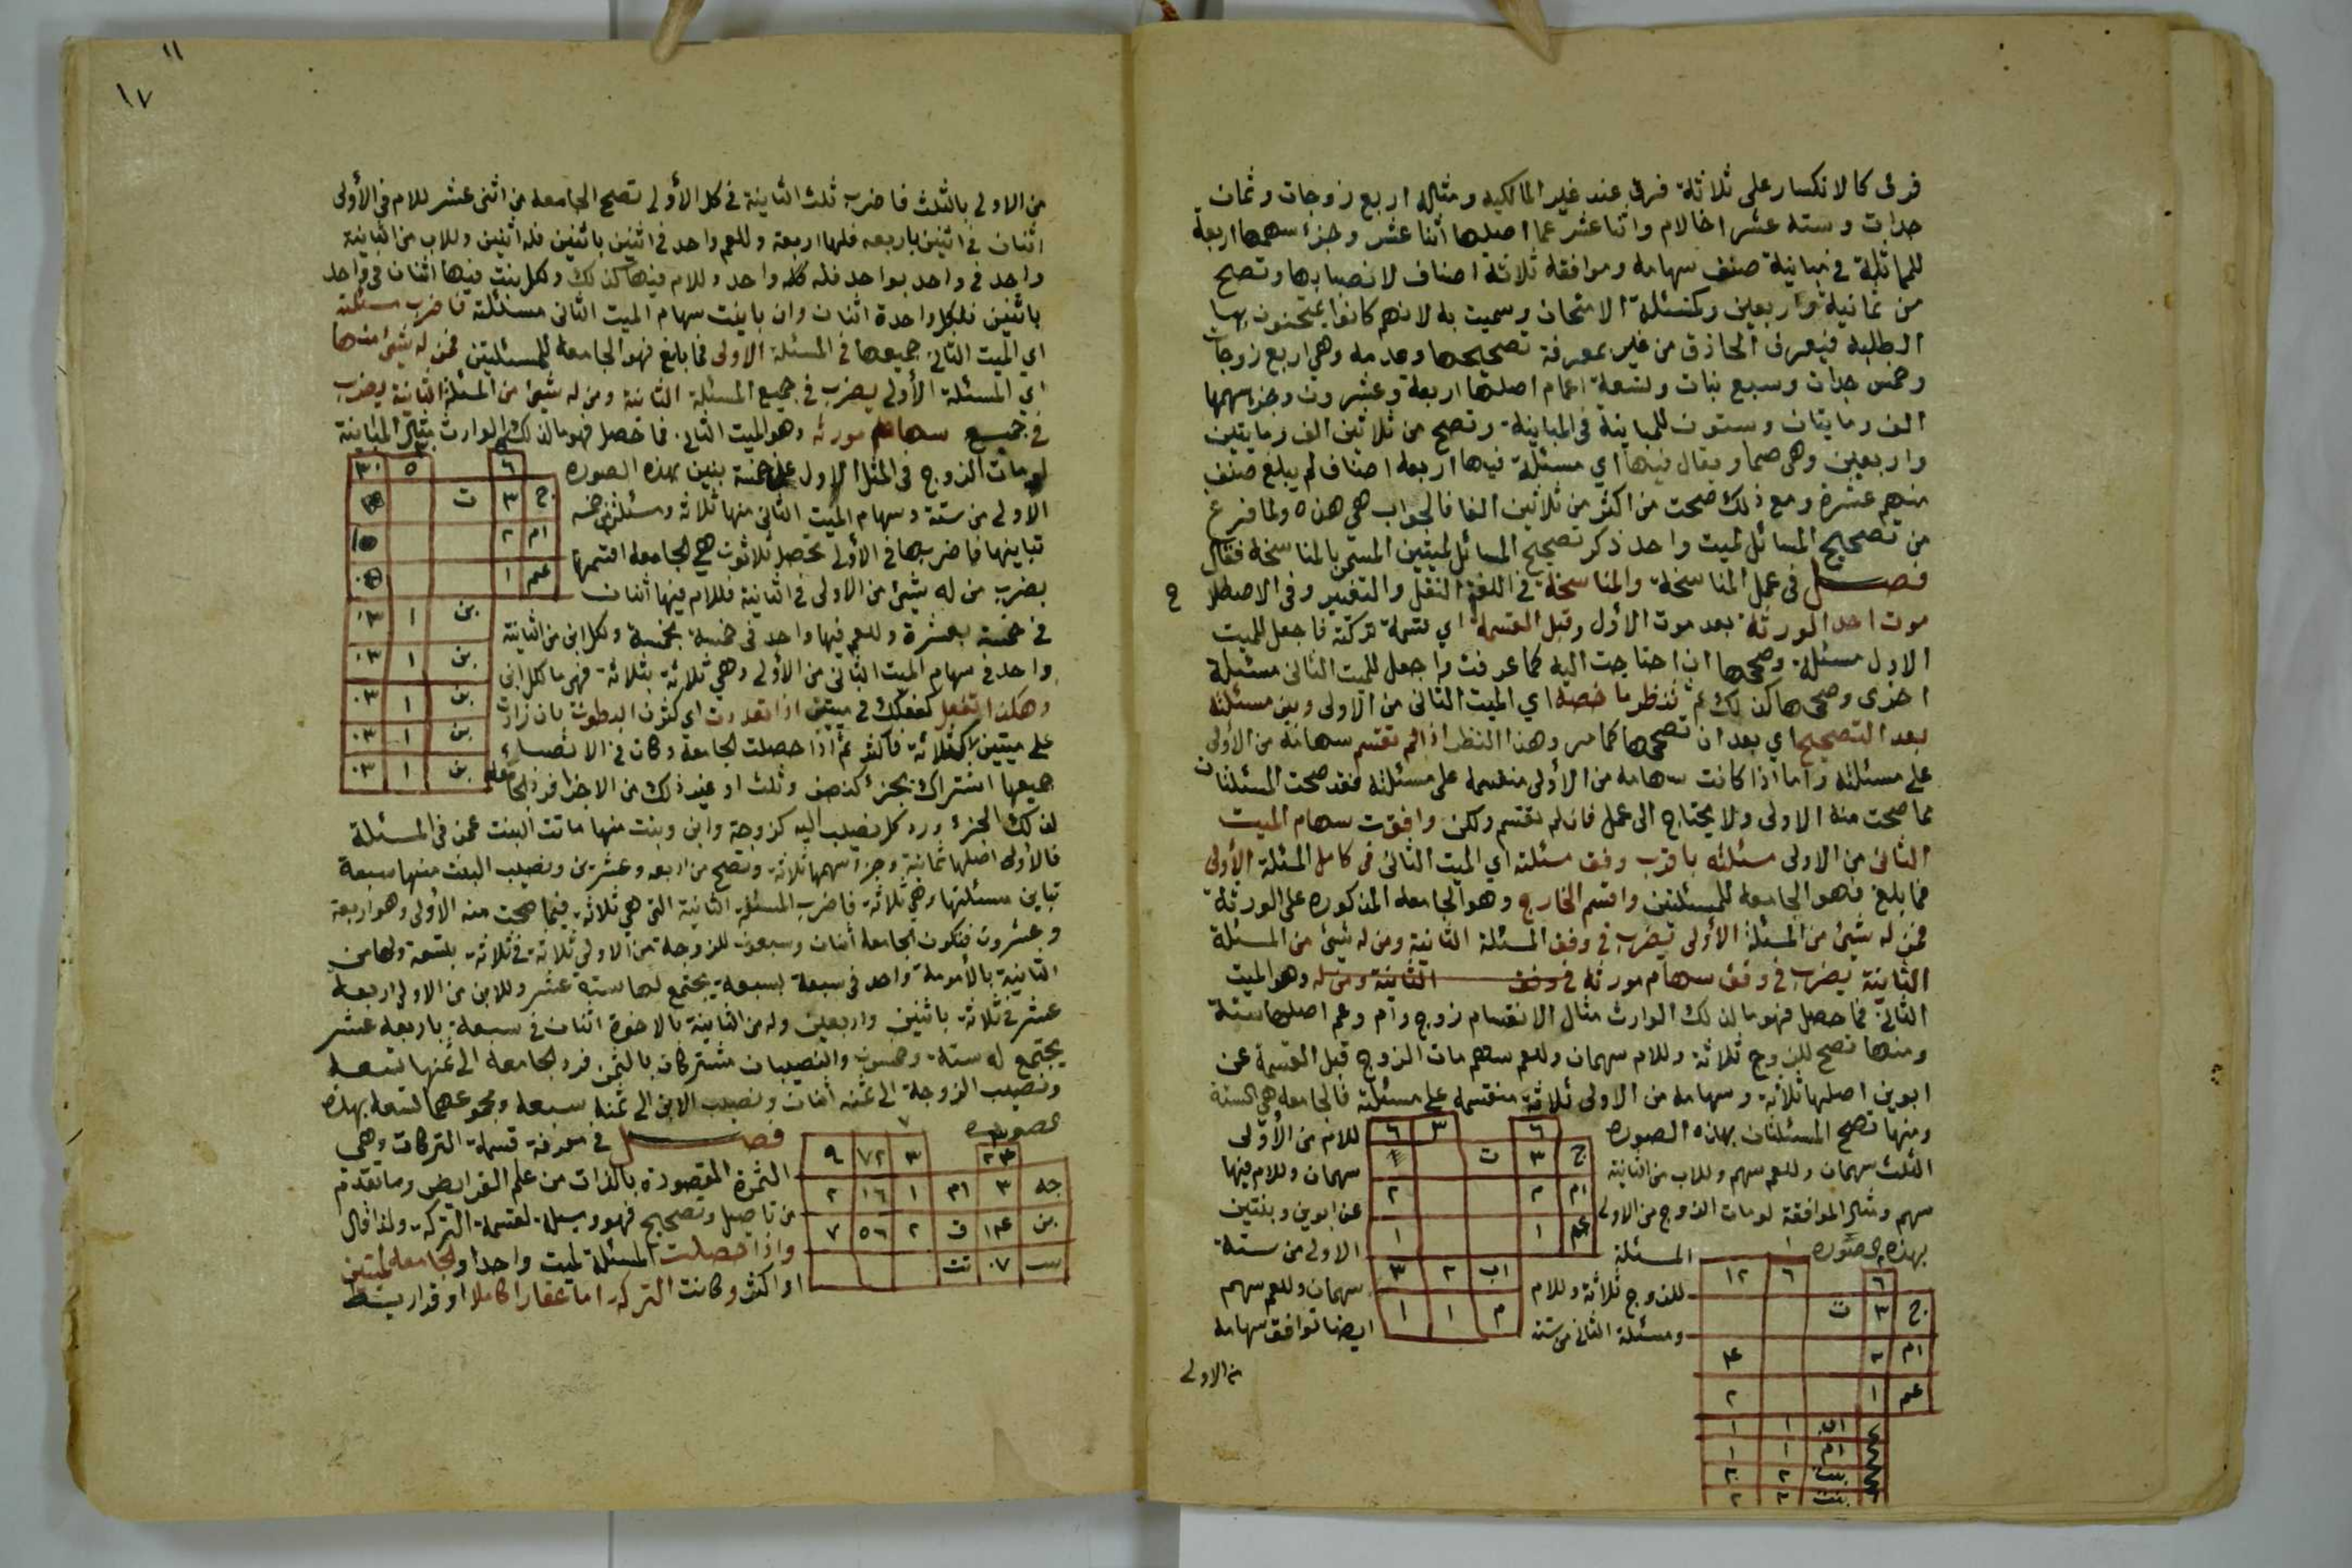 فرق كالانكسار على ثلاثة فرق عند غير المالكيه ومثاله اربع زوجات وثمان
جدات وستة عشر اخا لام واثنا عشر عما اصلها اثنا عشر وجزء سهمها اربعة
للمماثلة في مباينة صنف سهامه وموافقة ثلاثة اصناف لانصبابها وتصح
من ثمانية واربعين وكمسئلة الامتحان وسميت به لانهم كانوا يمتحنون بها
الطلبه فيعرف الحاذق من غيره بمعرفة تصحيحها وعدمه وهي اربع زوجات
وخمس جدات وسبع بنات وتسعة اعمام اصلها اربعة وعشرون وجزء سهمها
الف ومايتان وستون للمباينة في المباينة وتصح من ثلاثين الف ومايتين
واربعين وهي صما ويقال فيها اي مسئلة فيها اربعة اصناف لم يبلغ صنف
منهم عشرة ومع ذلك صحت من اكثر من ثلاثين الفا فالجواب هي هذه ولما فرغ
من تصحيح المسائل لميت واحد ذكر تصحيح المسائل لميتين المسمى بالمناسخة فقال
فصل في عمل المناسخة والمناسخة في اللغة النقل والتغيير وفي الاصطلا ح
موت احد الورثة بعد موت الأول وقبل القسمة اي قسمة تركته فاجعل للميت
الاول مسئلة وصححها ان احتاجت اليه كما عرفت واجعل للميت الثاني مسئلة
اخرى وصححها كذلك ثم تنظر ما خصه اي الميت الثاني من الاولى وبين مسئلته
بعد التصحيح اي بعد ان تصححها كما مر وهذا النظر اذا لم تقتسم سهامه من الأولى
على مسئلته واما اذا كانت سهامه من الأولى منقسمه على مسئلته فقد صحت المسئلتان
مما صحت منه الاولى ولا يحتاج الى عمل فان لم تقتسم ولكن وافقت سهام الميت
الثاني من الاولى مسئلته باضرب وفق مسئلته اي الميت الثاني في كامل المسئلة الأولى
فما بلغ فهو الجامعة للمسئلتين واقسم الخارج وهو الجامعة المذكوره على الورثة
فمن له شيئ من المسئلة الأولى يضرب في وفق المسئلة الثانية ومن له شيئ من المسئلة
الثانية يضرب في وفق سهام مورثه في وفق الثانية ومن له وهو الميت
الثاني فما حصل فهو ما لذلك الوارث مثال الانقسام زوج وام وعم اصلها ستة
ومنها تصح للزوج ثلاثة وللام سهمان وللعم سهم مات الزوج قبل القسمة عن
ابوين اصلها ثلاثة وسهامه من الاولى ثلاثة منقسمه على مسئلته فالجامعه هي الستة
ومنها تصح المسئلتان بهذه الصوره
للام من الأولى
الثلث سهمان وللعم سهم وللاب من الثانية
سهمان وللام فيها
سهم ومثال الموافقة لو مات الزوج من الاولى
عن ابوين وبنتين
بهذه الصوره
المسئلة
الاولى من ستة
للزوج ثلاثة وللام
سهمان وللعم سهم
ومسئلة الثاني من ستة
ايضا توافق سهامه
من الاولى
٦ ٣ ٦
ج ٣ ت
ام ٢ ٢
عم ١ ١
اب ٢ ٣
م ١ ١
٦ ٦ ١٢
ج ٣ ت
ام ٢ ٤
عم ١ ٢
اب ١ ١
ام ١ ١
بنت ٢ ٢
بنت ٢ ٢
١١
١٧
من الاولى بالثلث فاضرب ثلث الثانية في كل الأولى تصح الجامعه من اثنى عشر للام في الأولى
اثنان في اثنين باربعه فلها اربعة وللعم واحد في اثنين باثنين فله اثنين وللاب من الثانية
واحد في واحد بواحد فله واحد وللام فيها كذلك ولكل بنت فيها اثنان في واحد
باثنين فلكل واحدة اثنان وان باينت سهام الميت الثاني مسئلته فاضرب مسئلته
اي الميت الثاني جميعها في المسئلة الاولى فما بلغ فهو الجامعة للمسئلتين فمن له شيئ منها
اي المسئلة الأولى يضرب في جميع المسئلة الثانية ومن له شيئ من المسئلة الثانية يضرب
في جميع سهام مورثه وهو الميت الثاني فما حصل فهو ما لذلك الوارث مثال المباينة
لو مات الزوج في المثل الاول عن خمسة بنين بهذه الصوره
الاولى من ستة وسهام الميت الثاني منها ثلاثة ومسئلته من خمسه
تباينها فاضربها في الأولى تحصل ثلاثون هي الجامعه اقسمها
بضرب من له شيئ من الاولى في الثانية فللام فيها اثنان
في خمسة بعشرة وللعم فيها واحد في خمسة بخمسة ولكل ابن من الثانية
واحد في سهام الميت الثاني من الأولى وهي ثلاثة بثلاثة فهي ما لكل ابن
وهكذا تفعل كفعلك في ميتين اذا تعددت اي كثرت البطون بان زادت
على ميتين كثلاثة فاكثر ثم اذا حصلت الجامعة وكان في الانصباء
جميعها اشتراك بجزء كنصف وثلث او غير ذلك من الاجزا فرد الجامعة
لذلك الجزء ورد كل نصيب اليه كزوجة وابن وبنت منها ماتت البنت عمن في المسئلة
فالأولى اصلها ثمانية وجزء سهمها ثلاثة وتصح من اربعه وعشرين ونصيب البنت منها سبعة
تباين مسئلتها وهي ثلاثة فاضرب المسئلة الثانية التي هي ثلاثة فيما صحت منه الأولى وهو اربعة
وعشرون فتكون الجامعة اثنان وسبعون للزوجة من الاولى ثلاثة في ثلاثة بتسعة ولها من
الثانية بالأمومة واحد في سبعة بسبعة يجتمع لها ستة عشر وللابن من الاولى اربعة
عشر في ثلاثة باثنين واربعين وله من الثانية بالاخوة اثنان في سبعة باربعة عشر
يجتمع له ستة وخمسون والنصيبان مشتركان بالثمن فرد الجامعه الى ثمنها تسعه
ونصيب الزوجة الى ثمنه اثنان ونصيب الابن الى ثمنه سبعه ومجموعهما تسعه بهذه
الصوره
فصل في معرفة قسمة التركات وهي
الثمرة المقصودة بالذات من علم الفرايض وما تقدم
من تاصيل وتصحيح فهو وسيلة لقسمة التركة ولذا قال
واذا حصلت المسئلة لميت واحد او الجامعة لميتين
او اكثر وكانت التركه اما عقارا كاملا او قراريط
٦ ٥ ٣٠
ج ٣ ت
ام ٢ ١٠
عم ١
بن ١ ٠٣
بن ١ ٠٣
بن ١ ٠٣
بن ١ ٠٣
بن ١ ٠٣
٢٤ ٣ ٧٢ ٩
جه ٣ ام ١ ١٦ ٢
بن ١٤ ق ٢ ٥٦ ٧
ت ٠٧ تت